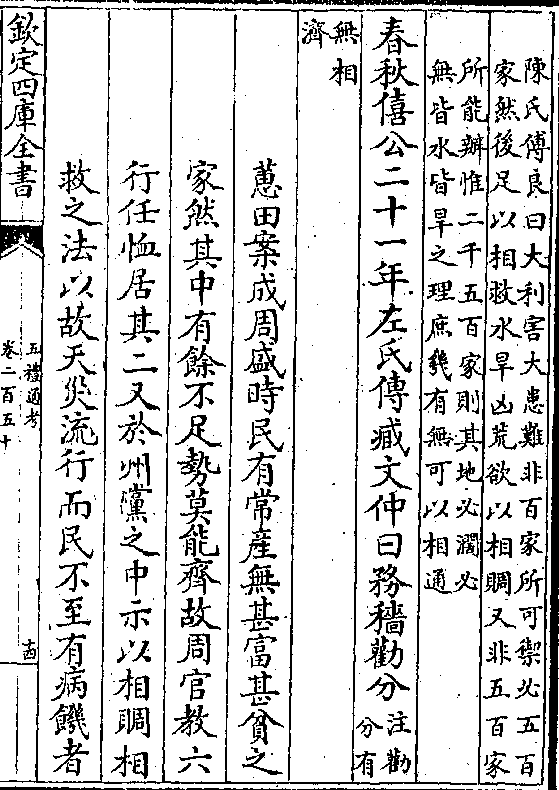 陳氏傅良曰大利害大患難非百家所可禦必五百
家然後足以相救水旱凶荒欲以相賙又非五百家
所能辦惟二千五百家則其地必濶必
無皆水皆旱之理庶幾有無可以相通
春秋僖公二十一年左氏傳臧文仲曰務穡勸分注勸
分有
無相
濟
蕙田案成周盛時民有常産無甚富甚貧之
家然其中有餘不足勢莫能齊故周官教六
行任恤居其二又於州黨之中示以相賙相
救之法以故天災流行而民不至有病饑者
欽定四庫全書
五禮通考
卷二百五十
十四